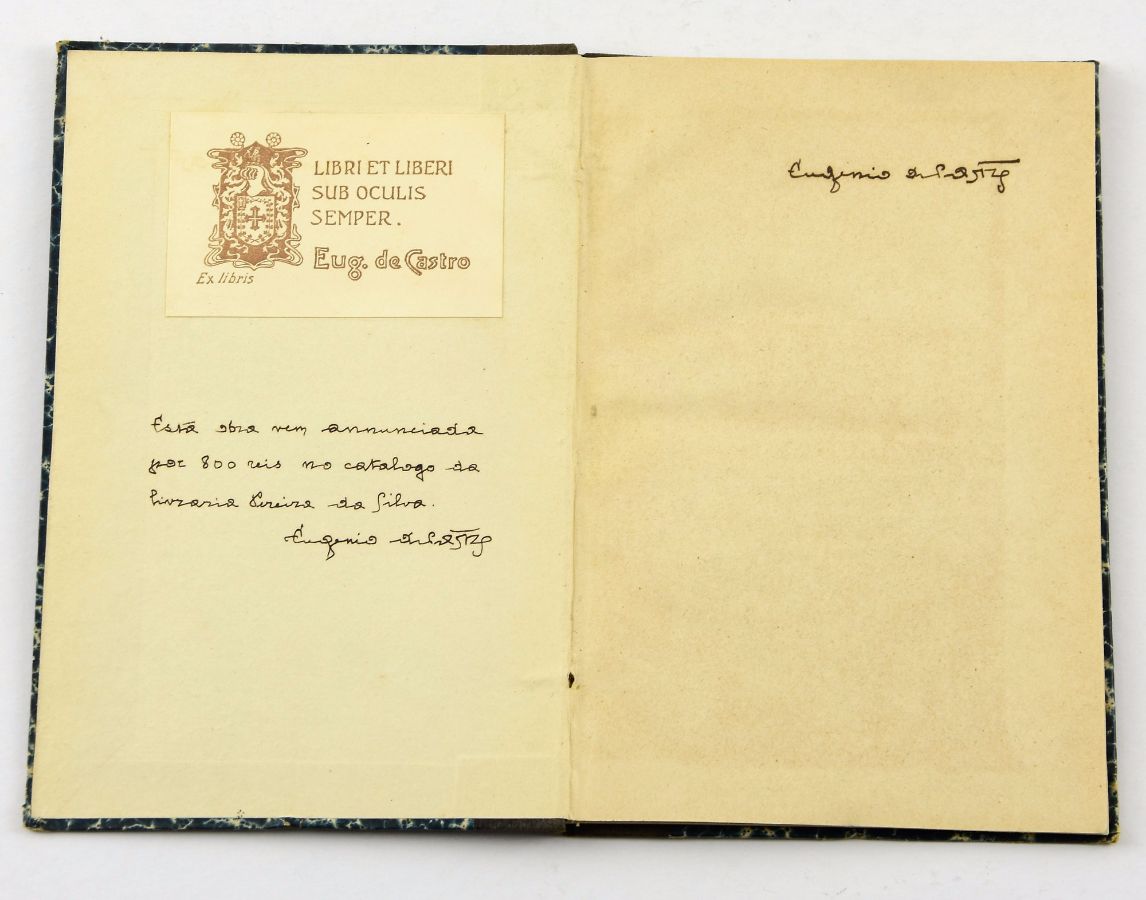 LIBRI ET LIBERI
SUB OCULIS
SEMPER.
Eug. de Castro
Ex libris
Está obra vem annunciada
por 800 reis no catalogo da
livraria Pereira da Silva.
Eugenio de Castro
Eugenio de Castro